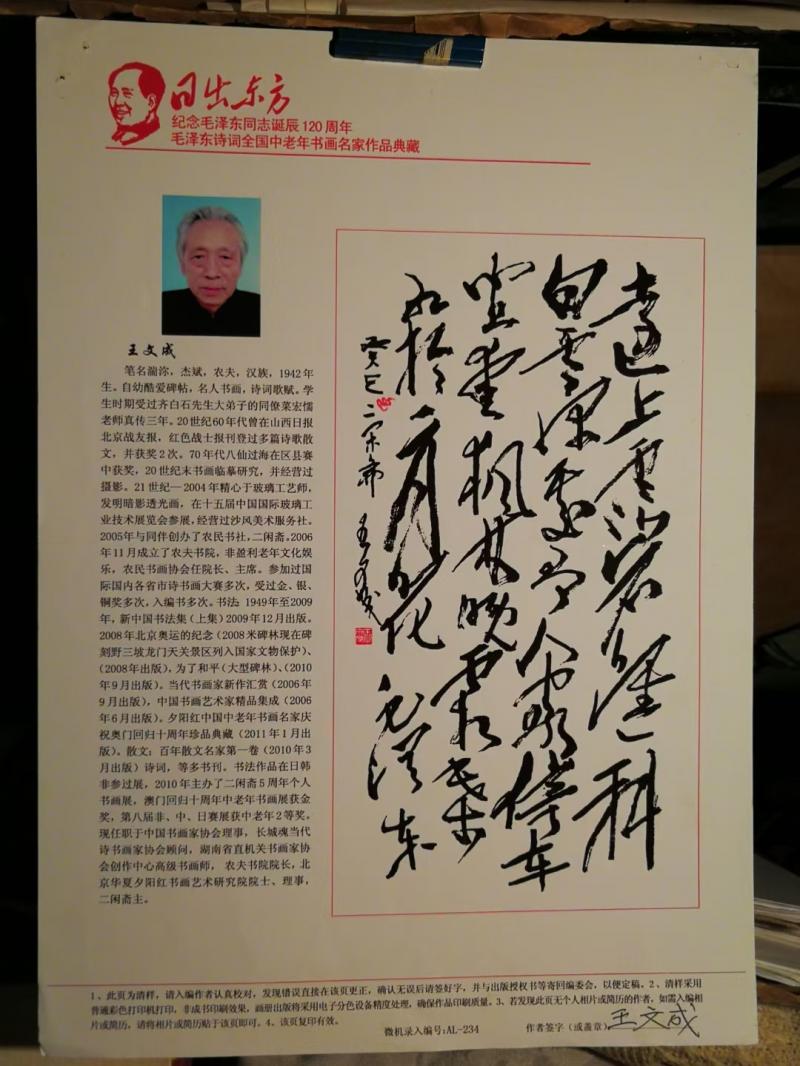 日出东方
纪念毛泽东同志诞辰120周年
毛泽东诗词全国中老年书画名家作品典藏
王文成
笔名湍沵，杰斌，农夫，汉族，1942年
生。自幼酷爱碑帖，名人书画，诗词歌赋。学
生时期受过齐白石先生大弟子的同僚菜宏懦
老师真传三年。20世纪60年代曾在山西日报
北京战友报，红色战士报刊登过多篇诗歌散
文，并获奖2次。70年代八仙过海在区县赛
中获奖，20世纪末书画临摹研究，并经营过
摄影。21世纪—2004年精心于玻璃工艺师，
发明暗影透光画，在十五届中国国际玻璃工
业技术展览会参展，经营过沙风美术服务社。
2005年与同伴创办了农民书社，二闲斋。2006
年11月成立了农夫书院，非盈利老年文化娱
乐，农民书画协会任院长、主席。参加过国
际国内各省市诗书画大赛多次，受过金、银、
铜奖多次，入编书多次。书法：1949年至2009
年，新中国书法集（上集）2009年12月出版。
2008年北京奥运的纪念（2008米碑林现在碑
刻野三坡龙门天关景区列入国家文物保护）、
（2008年出版），为了和平（大型碑林）、（2010
年9月出版）。当代书画家新作汇赏（2006年
9月出版），中国书画艺术家精品集成（2006
年6月出版）。夕阳红中国中老年书画名家庆
祝奥门回归十周年珍品典藏（2011年1月出
版）。散文：百年散文名家第一卷（2010年3
月出版）诗词，等多书刊。书法作品在日韩
非参过展，2010年主办了二闲斋5周年个人
书画展，澳门回归十周年中老年书画展获金
奖，第八届非、中、日赛展获中老年2等奖，
现任职于中国书画家协会理事，长城魂当代
诗书画家协会顾问，湖南省直机关书画家协
会创作中心高级书画师， 农夫书院院长，北
京华夏夕阳红书画艺术研究院院士、理事，
二闲斋主。
远上寒山石径斜
白云深处有人家停车
坐爱枫林晚霜叶
红于二月花 毛泽东
癸巳 王文成
1、此页为清样，请入编作者认真校对，发现错误直接在该页更正，确认无误后请签好字，并与出版授权书等寄回编委会，以便定稿。2、清样采用
普通彩色打印机打印，非成书印刷效果，画册出版将采用电子分色设备精度处理，确保作品印刷质量。3、若发现此页无个人相片或简历的作者，如需入编相
片或简历，请将相片或简历贴于该页即可。4、该页复印有效。
微机录入编号:AL-234
作者签字（或盖章）王文成